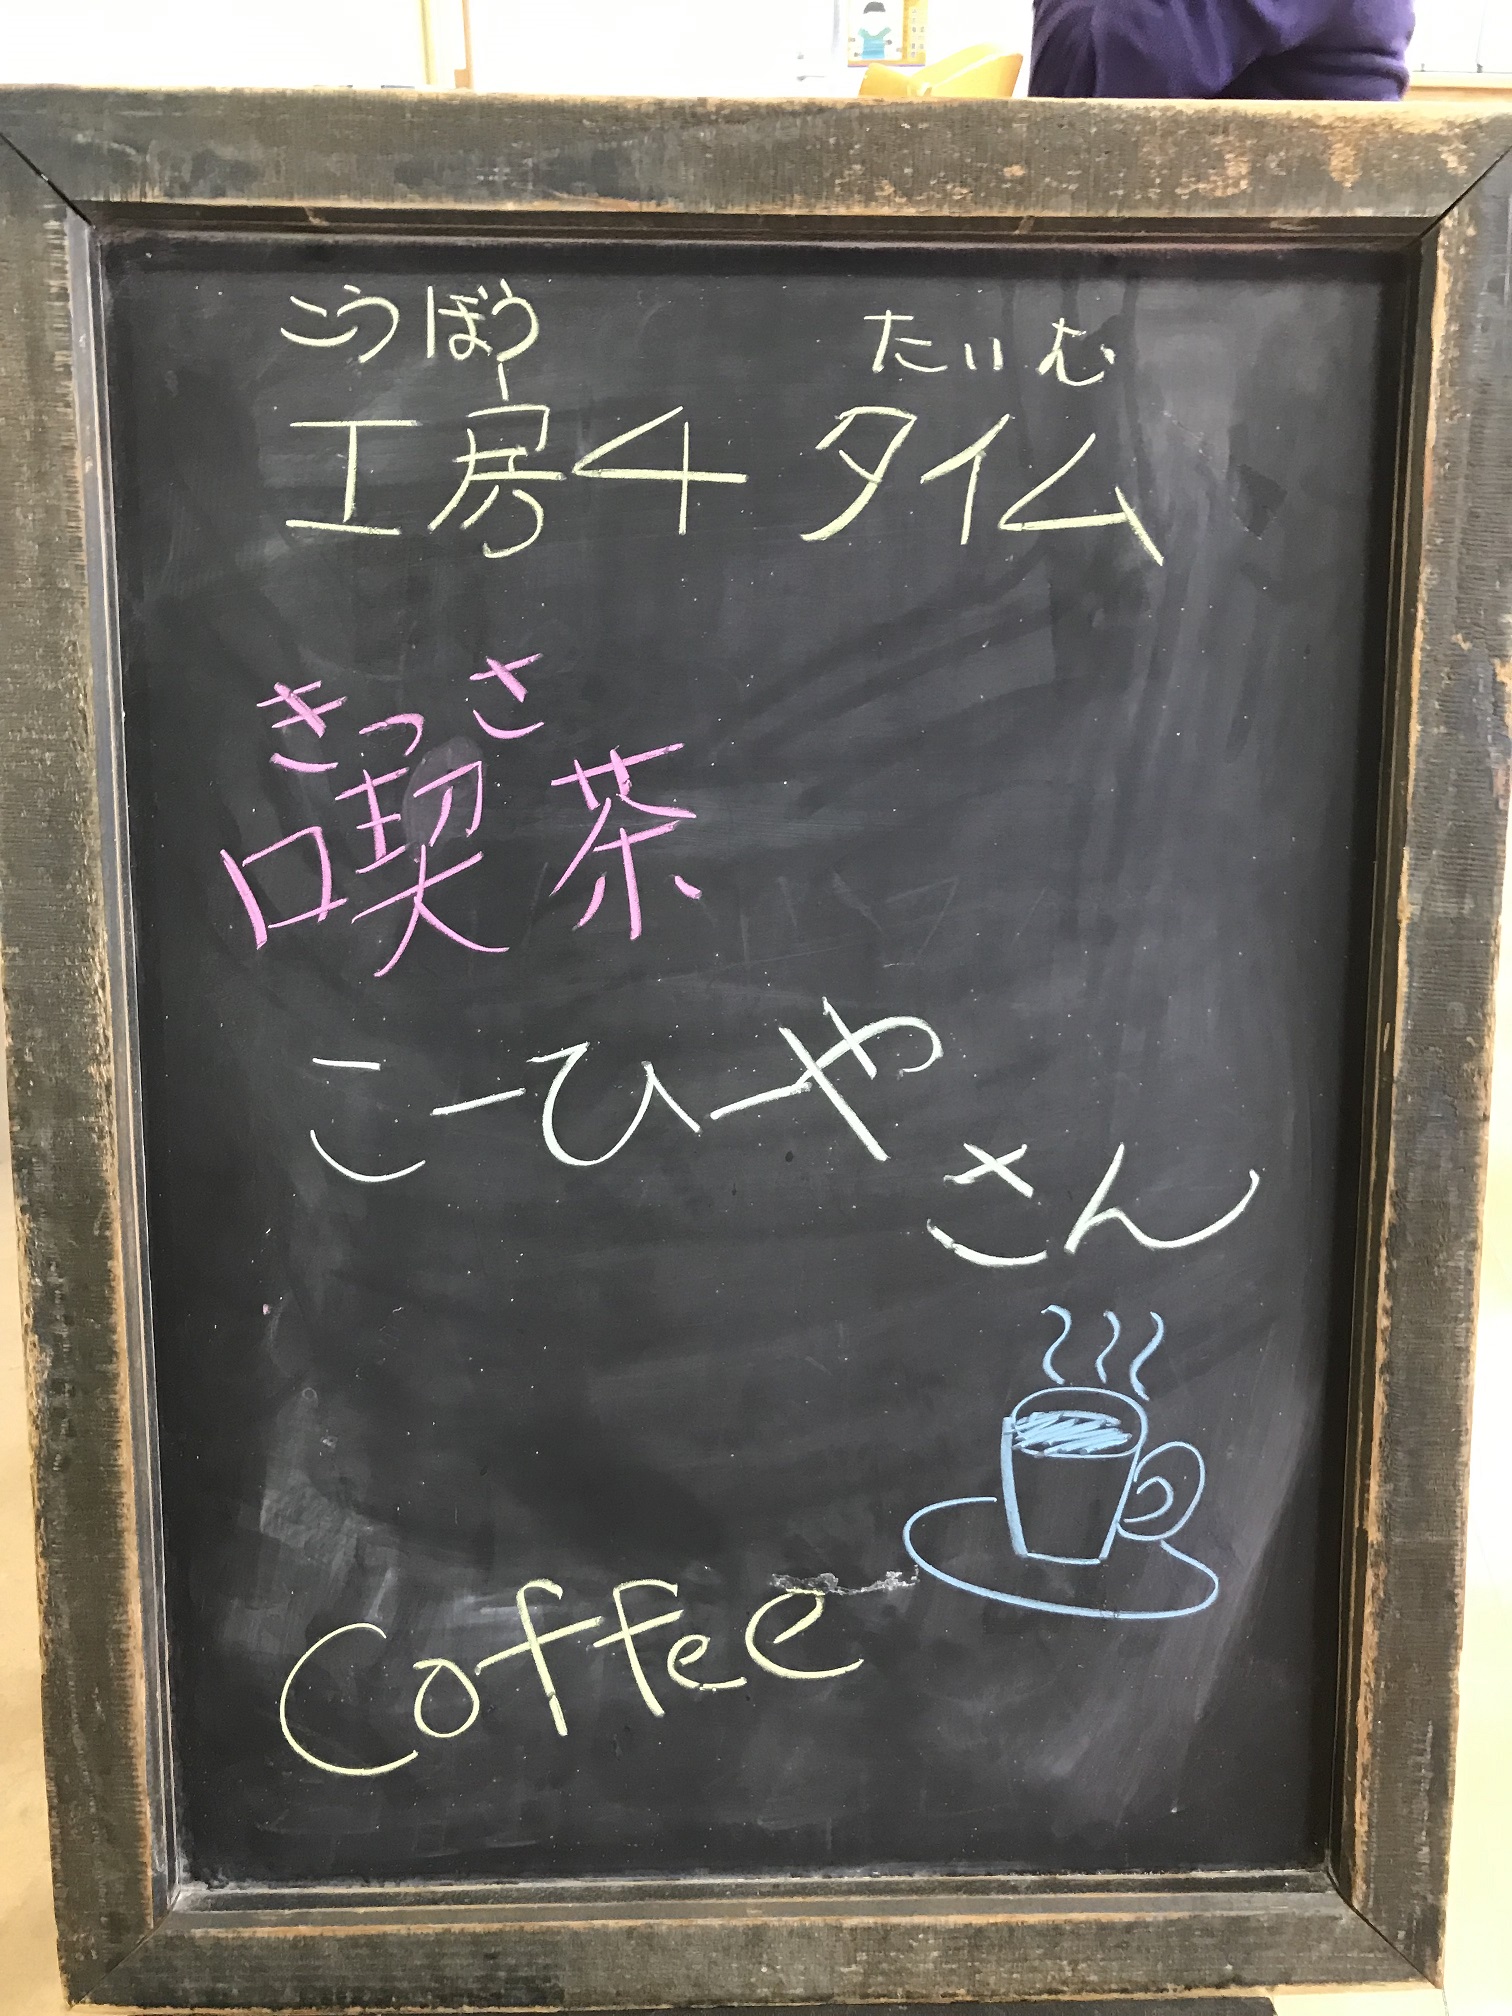 こうぼう たいむ
工房4 タイム
きっさ
喫茶
こーひーや
さん
Coffee